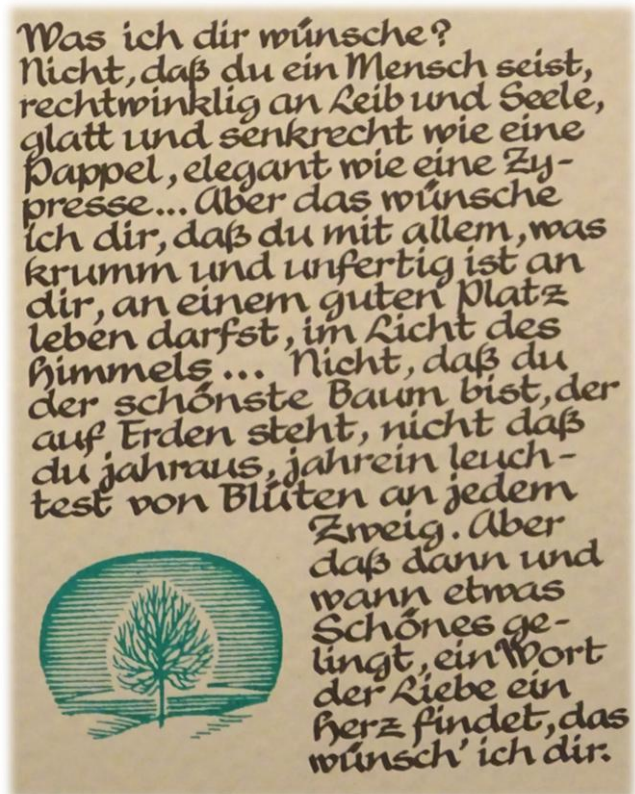 Was ich dir wünsche?
Nicht, daß du ein Mensch seist,
rechtwinklig an Leib und Seele,
glatt und senkrecht wie eine
Pappel, elegant wie eine Zy-
presse... Aber das wünsche
ich dir, daß du mit allem, was
krumm und unfertig ist an
dir, an einem guten Platz
leben darfst, im Licht des
Himmels... Nicht, daß du
der schönste Baum bist, der
auf Erden steht, nicht daß
du jahraus, jahrein leuch-
test von Blüten an jedem
Zweig. Aber
daß dann und
wann etwas
Schönes ge-
lingt, ein Wort
der Liebe ein
Herz findet, das
wünsch' ich dir.